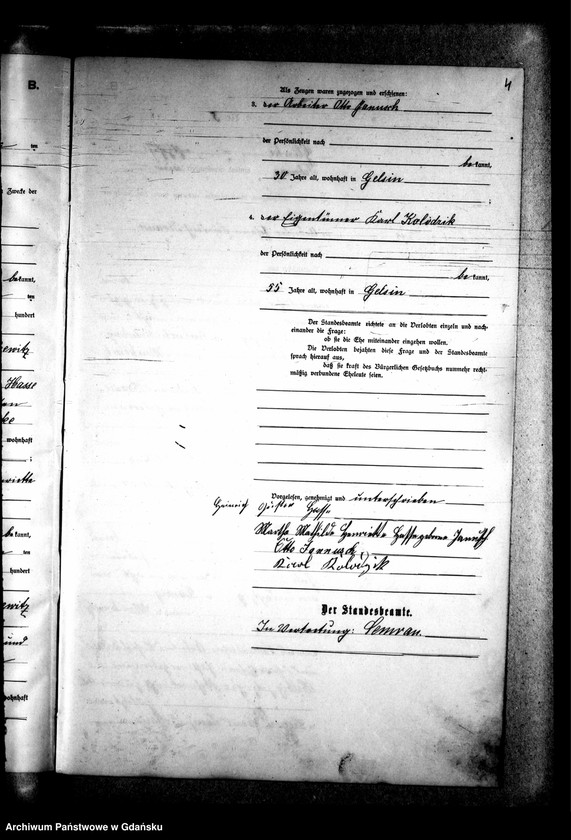 B.
ten
n Zwecke der
bekannt,
ten
hundert
ewitz
Hasse
wohnhaft
;
bekannt,
ten
hundert
ewitz
und
wohnhaft
4
Als Zeugen waren zugezogen und erschienen:
3. der Arbeiter Otto Jannusch
der Persönlichkeit nach
bekannt,
30 Jahre alt, wohnhaft in Gelsin
4. der Eigentümer Karl Kolodzik
der Persönlichkeit nach
bekannt,
55 Jahre alt, wohnhaft in Gelsin
Der Standesbeamte richtete an die Verlobten einzeln und nach-
einander die Frage:
ob sie die Ehe miteinander eingehen wollen.
Die Verlobten bejahten diese Frage und der Standesbeamte
sprach hierauf aus,
daß sie kraft des Bürgerlichen Gesetzbuchs nunmehr recht-
mäßig verbundene Eheleute seien.
Vorgelesen, genehmigt und unterschrieben
Heinrich Hasse
Martha Mathilde Henriette Hasse geborene Jannusch
Otto Jannusch
Karl Kolodzik
Der Standesbeamte.
In Vertretung: Semrau.
Archiwum Państwowe w Gdańsku